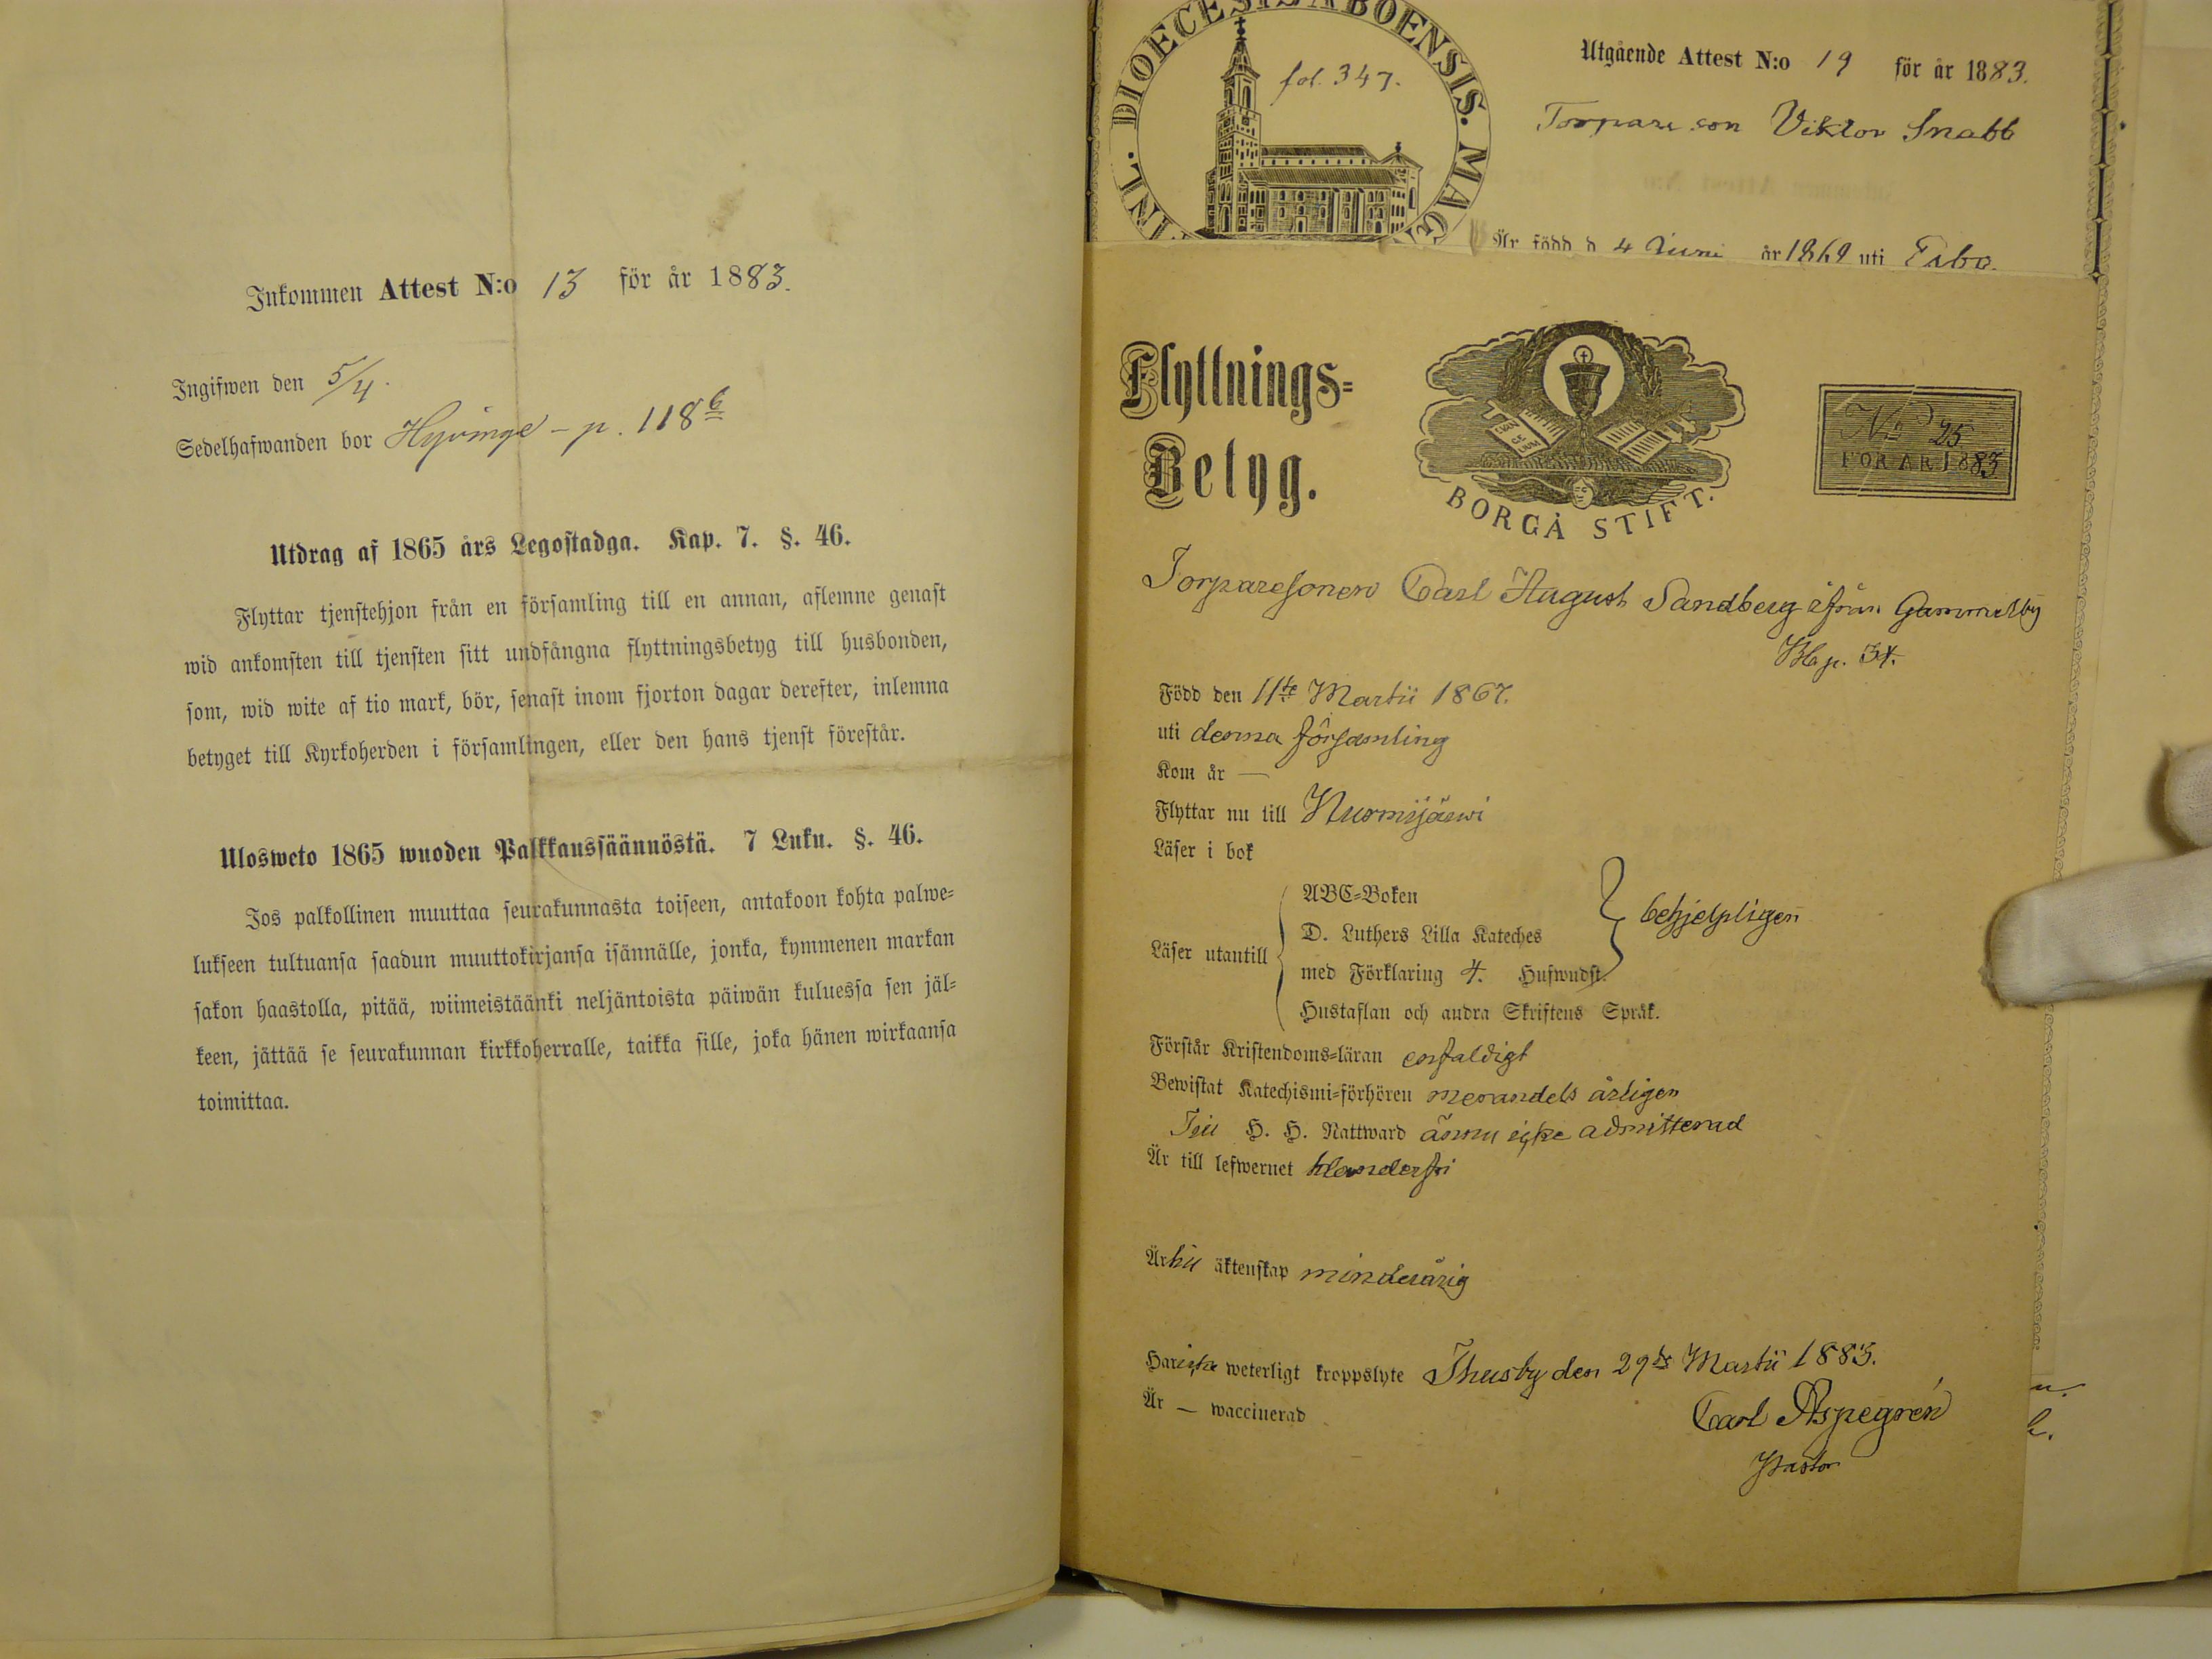 Inkommen Attest N:o 13 för år 1883.
Ingifwen den 5/4.
Sedelhafwanden bor Hyvinge - p. 118 b
Utdrag af 1865 års Legostadga. Kap. 7. §. 46.
Flyttar tjenstehjon från en församling till en annan, aflemne genast
wid ankomsten till tjensten sitt undfångna flyttningsbetyg till husbonden,
som, wid wite af tio mark, bör, senast inom fjorton dagar derefter, inlemna
betyget till Kyrkoherden i församlingen, eller den hans tjenst förestår.
Ulosweto 1865 wuoden Palkkaussäännöstä. 7 Luku. §. 46.
Jos palkollinen muuttaa seurakunnasta toiseen, antakoon kohta palwe-
lukseen tultuansa saadun muuttokirjansa isännälle, jonka, kymmenen markan
sakon haastolla, pitää, wiimeistäänki neljäntoista päiwän kuluessa sen jäl-
keen, jättää se seurakunnan kirkkoherralle, taikka sille, joka hänen wirkaansa
toimittaa.
DIOECESIS ABOENSIS. MAG
INL.
fol. 347.
Utgående Attest N:o 19 för år 1883.
Torpare son Viktor Snabb
Är född d 4 Juni år 1869 uti Esbo.
Flyttnings-
Betyg.
EVAN
GE
LIUM
BORGÅ STIFT.
No 25
FÖR ÅR 1883
Torparesonen Carl August Sandberg ifrån Gammelby
Kb p. 54.
Född den 11te Martii 1867.
uti denna församling
Kom år —
Flyttar nu till Nurmijärwi
Läser i bok
Läser utantill
ABC-Boken
D. Luthers Lilla Kateches
med Förklaring 4. Hufwudst.
Hustaflan och andra Skriftens Språk.
behjelpligen
Förstår Kristendoms-läran enfaldigt
Bewistat Katechismi-förhören merendels årligen
Till H. H. Nattward ännu icke admitterad
Är till lefwernet klanderfri
Är till äktenskap minderårig
Har icke weterligt kroppslyte Thusby den 29de Martii 1883.
Är — waccinerad
Carl Aspegrén
Pastor